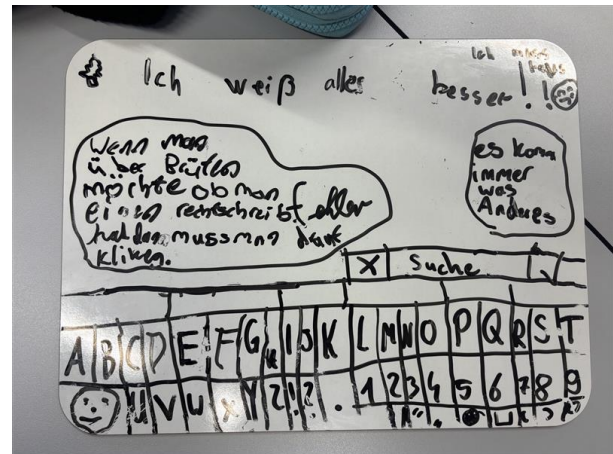 Ich weiß alles besser!!
Ich
Wenn man
über Brüfen
möchte ob man
einen rechtschreibfehler
hat dan muss man
kliken.
es kann
immer
was
Anderes
X Suche √
A B C D E F G H I J K L M N O P Q R S T
U V W X Y Z ! ? . 1 2 3 4 5 6 7 8 9